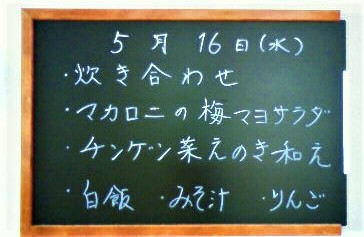 5月16日(水)
・炊き合わせ
・マカロニの梅マヨサラダ
・チンゲン菜えのき和え
・白飯 ・みそ汁 ・りんご